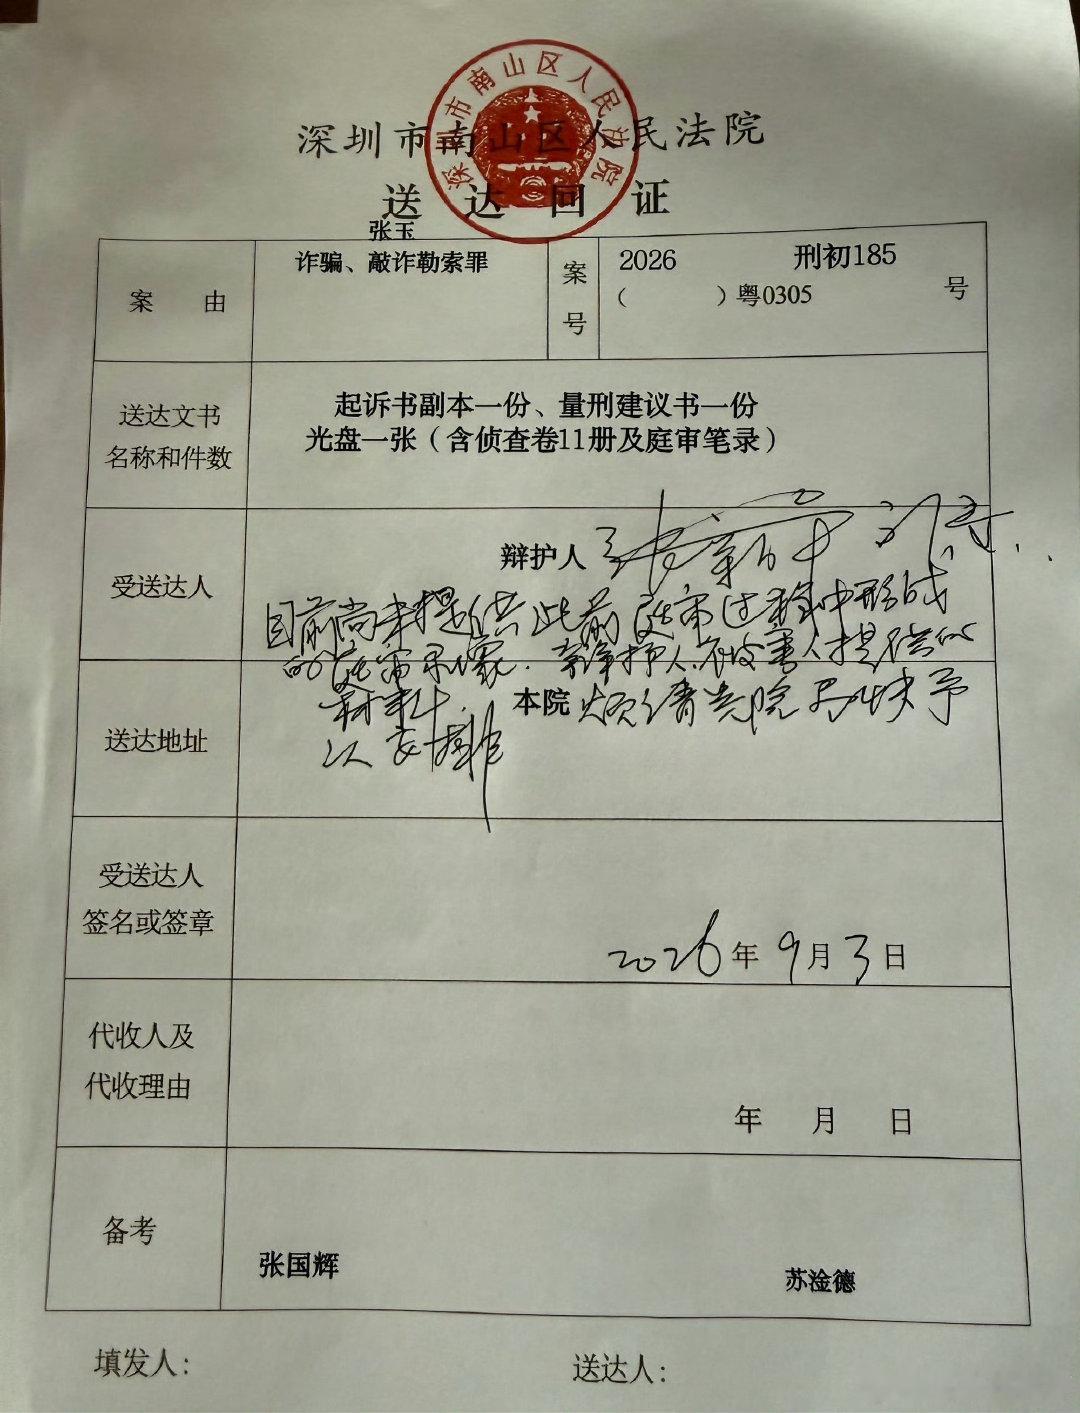 深圳市南山区人民法院
深圳市南山区人民法院
送达回证
案由
张玉
诈骗、敲诈勒索罪
案号
2026 刑初185
（ ）粤0305 号
送达文书
名称和件数
起诉书副本一份、量刑建议书一份
光盘一张（含侦查卷11册及庭审笔录）
受送达人
辩护人
目前尚未提供此前庭审过程中形成
的庭审录像、辩护人、被害人提供的
材料，
送达地址
本院 烦请贵院尽快予
以安排
受送达人
签名或签章
2026年9月3日
代收人及
代收理由
年 月 日
备考
张国辉 苏淦德
填发人： 送达人：